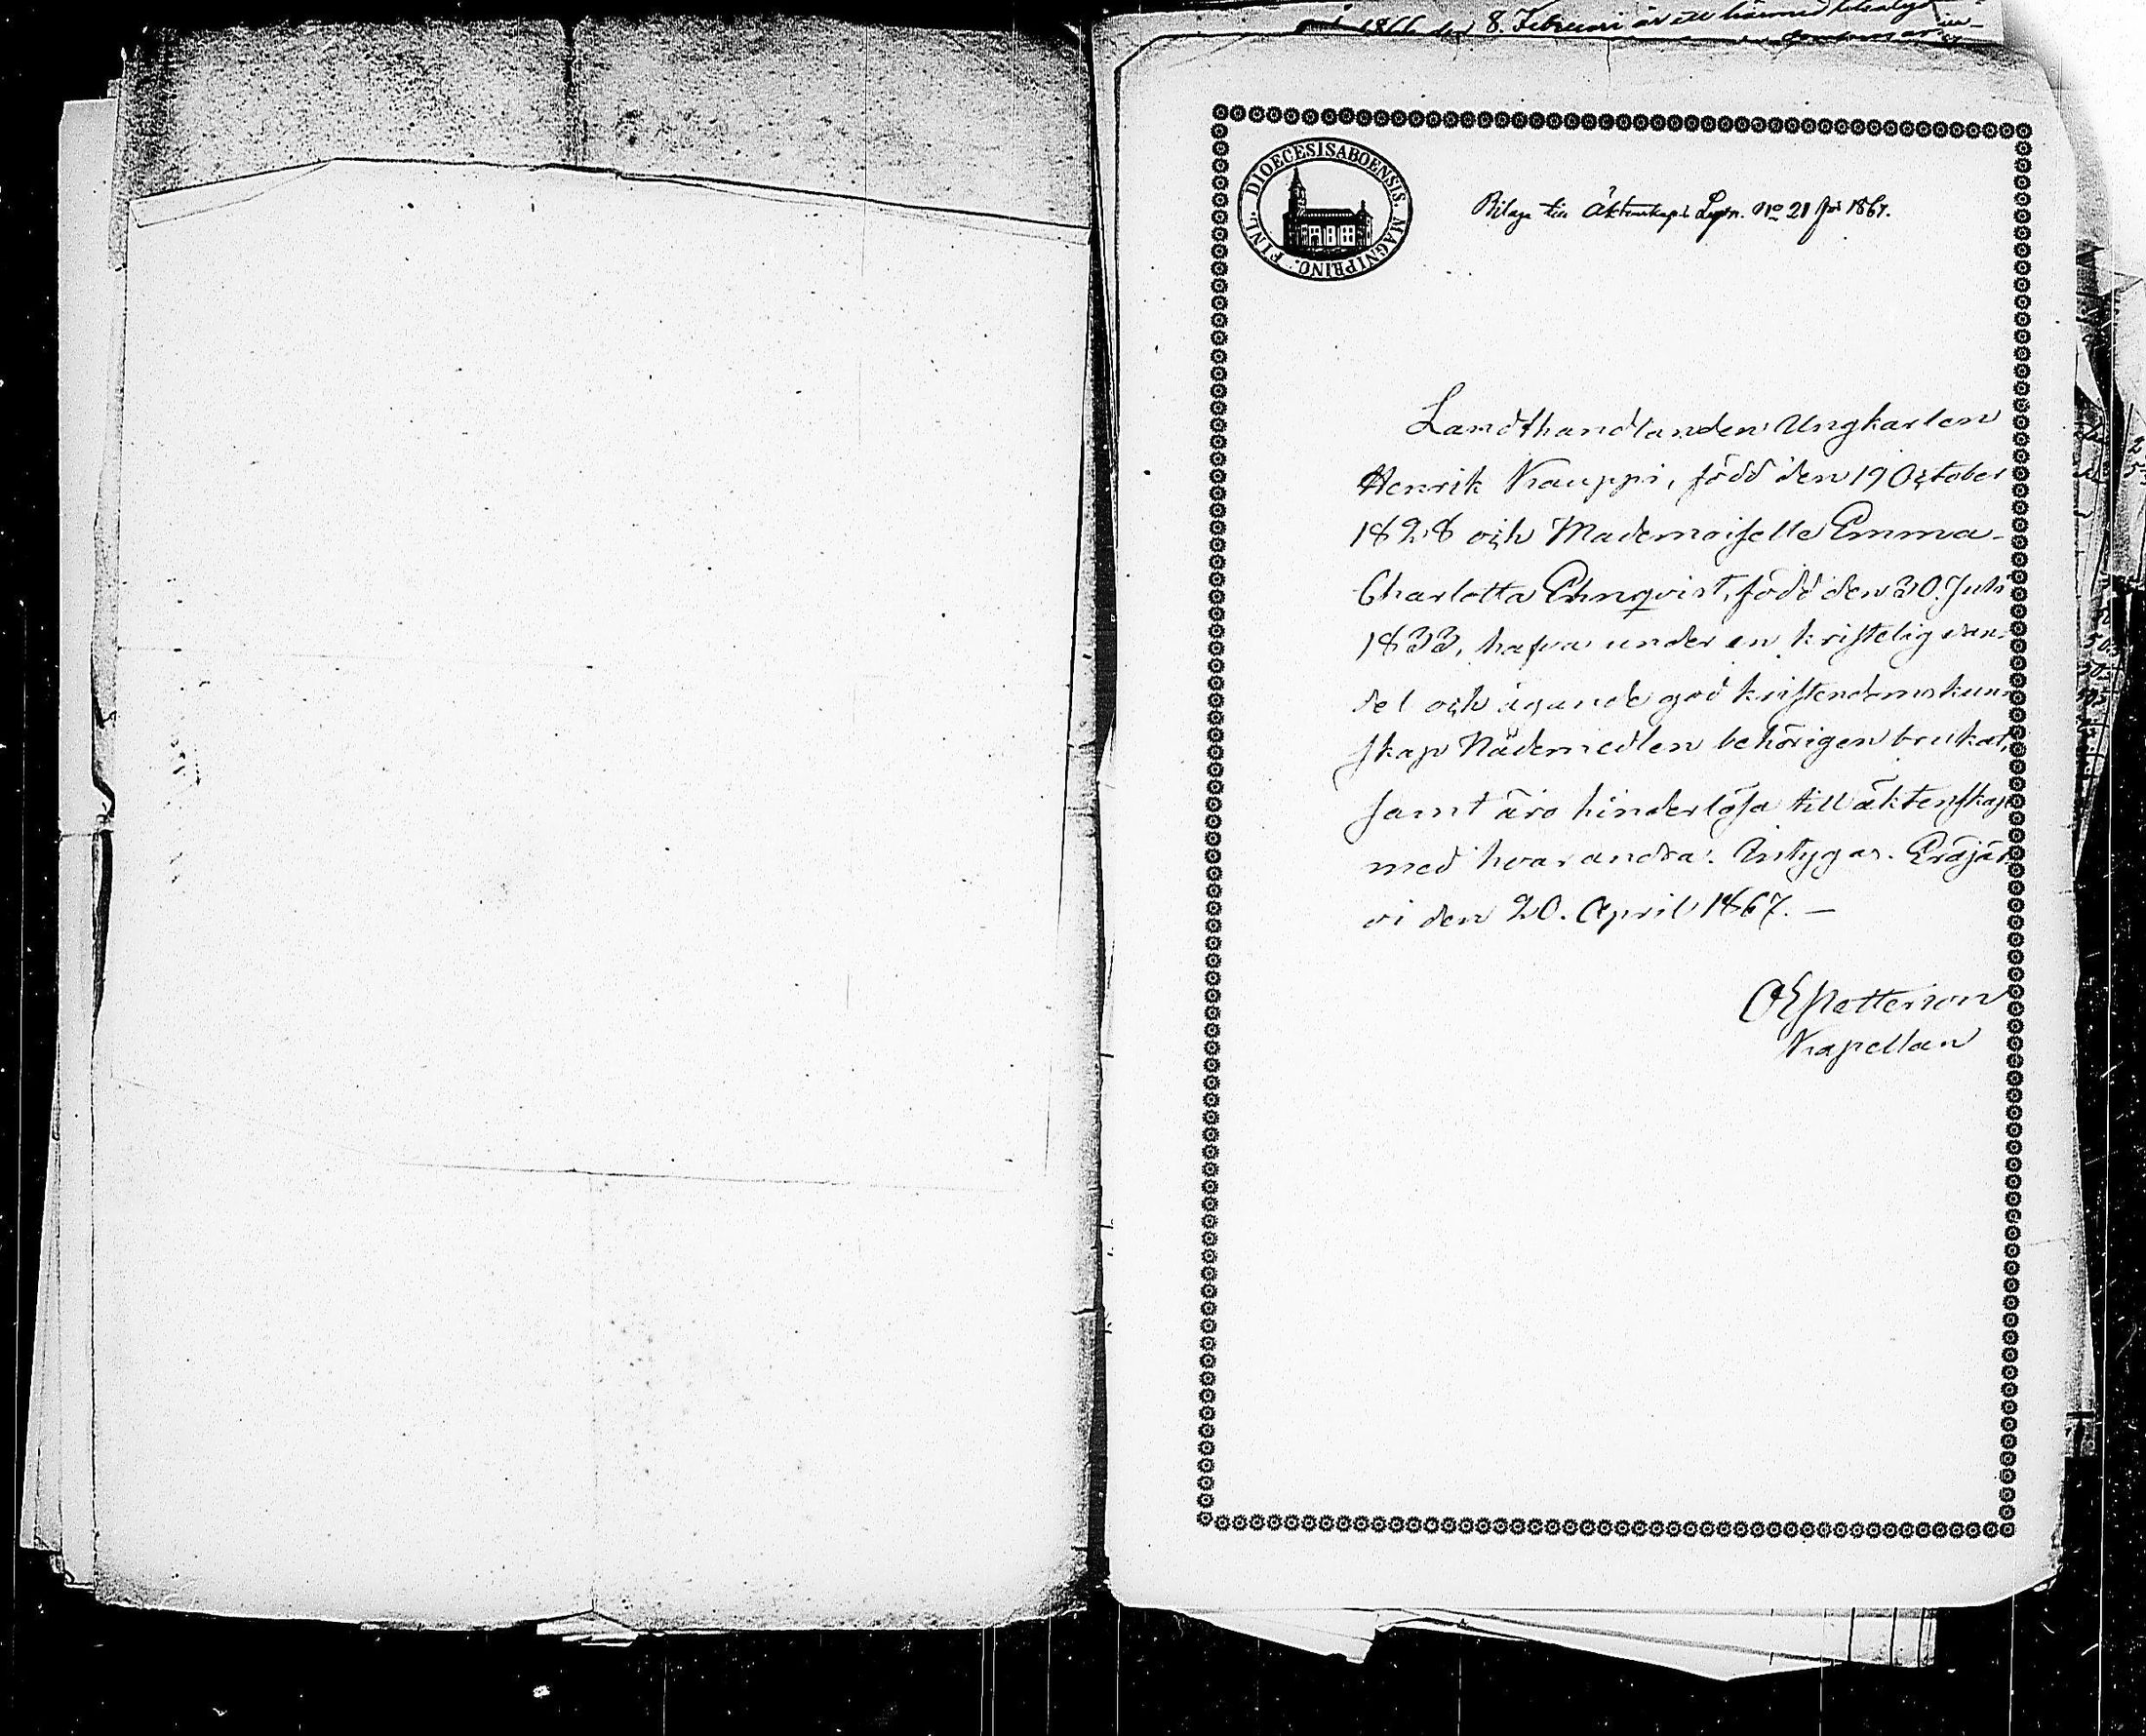 1866 den 8. Februari är ett härmed
DIOECESIS ABOENSIS. MAGNI PRINC. FINL.
Bilaga till Äktenskaps Lysn. No 21 för 1867.
Landthandlanden Ungkarlen
Henrik Kauppi, född den 19 October
1828 och Mademoiselle Emma
Charlotta Ehnqvist, född den 30. Juli
1833, hafva under en kristelig van-
del och ägande god kristendomskun-
skap Nådemedlen behörigen brukat,
samt äro hinderlösa till äktenskap
med hvarandra. Intygar. Eräjär
vi den 20. April 1867. —
Petterson
Kapellan